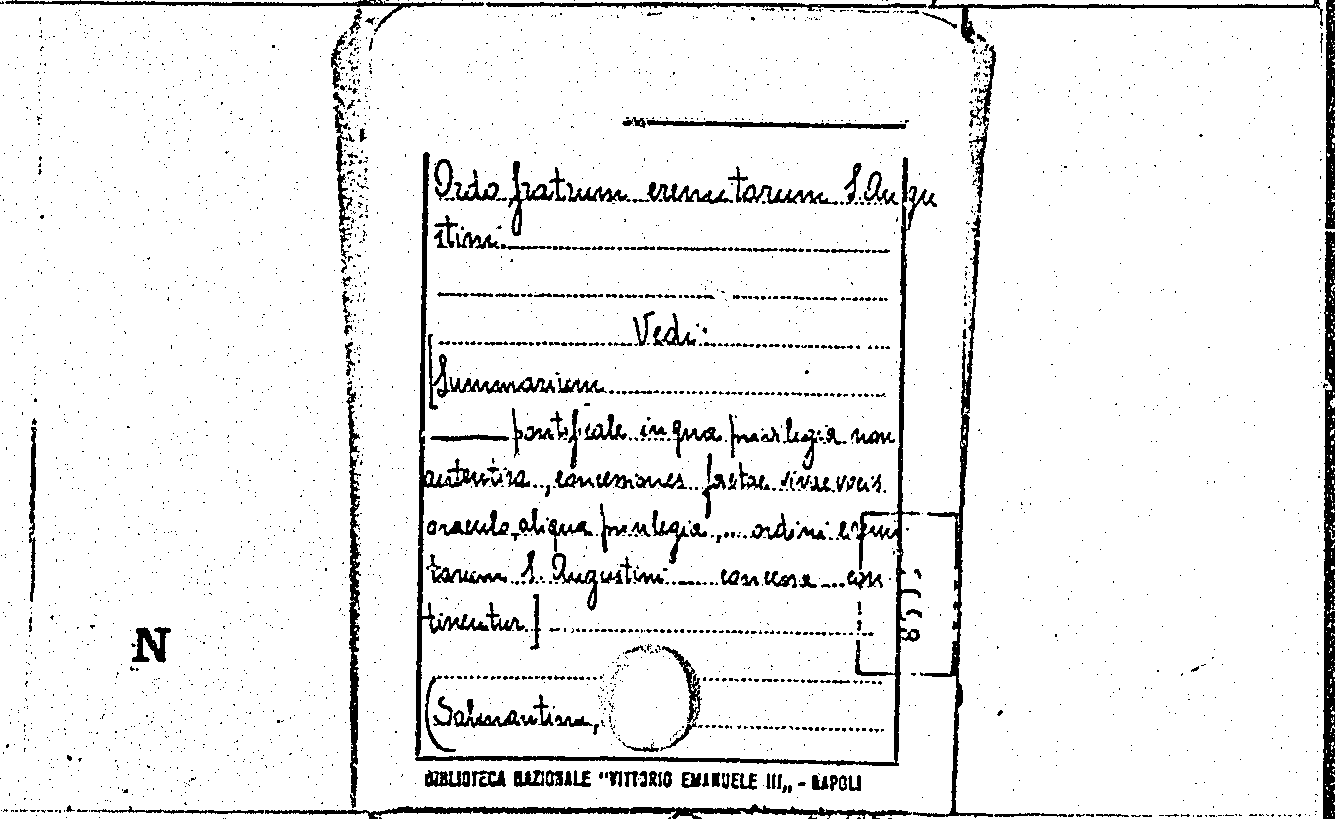 Ordo fratrum eremitarum S. Augu
stini
Vedi:
[Summarium
pontificale in qua privilegia non
autentica, concessiones factae vivae vocis
oraculo, aliqua privilegia, ... ordini eremi
tarum S. Augustini concesse con
tinentur]
(Salmantina,
N
BIBLIOTECA NAZIONALE "VITTORIO EMANUELE III„ - NAPOLI